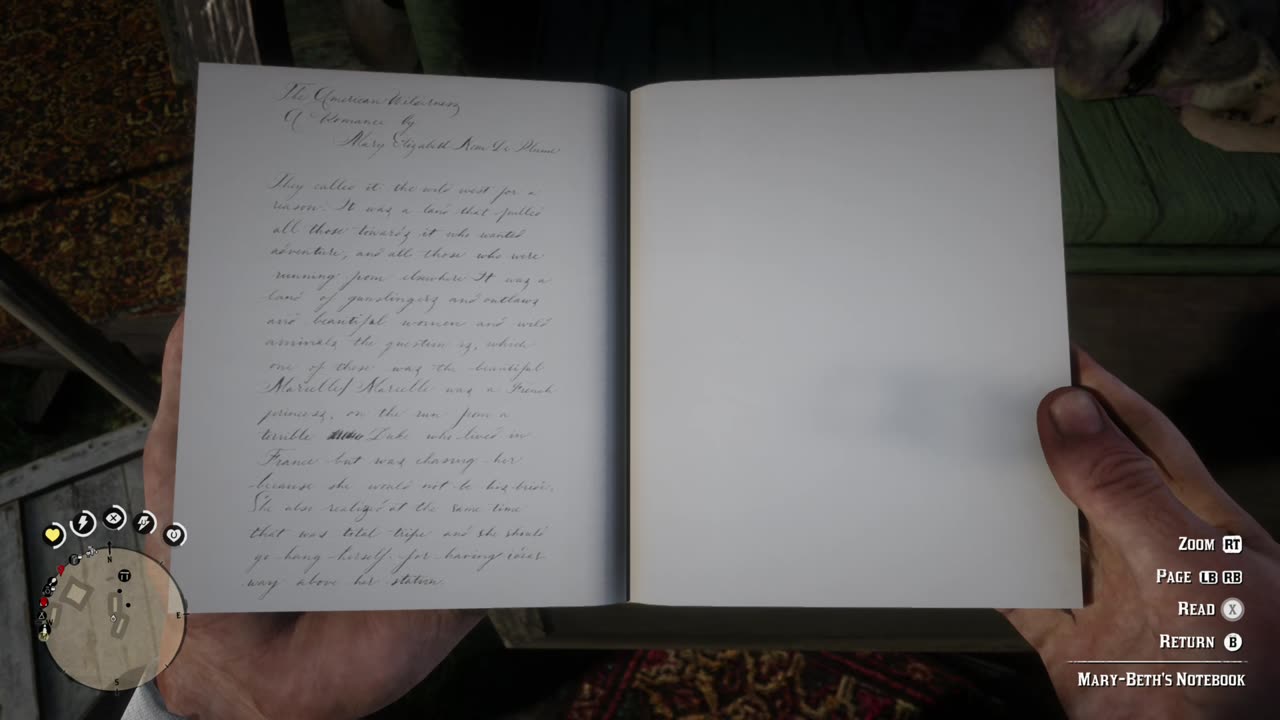 The American Wilderness
A Romance by
Mary Elizabeth Nom De Plume
They called it the wild west for a
reason. It was a land that pulled
all those towards it who wanted
adventure, and all those who were
running from elsewhere It was a
land of gunslingers and outlaws
and beautiful women and wild
animals the question is, which
one of these was the beautiful
Marielle? Marielle was a French
princess, on the run from a
terrible Duke who lived in
France but was chasing her
because she would not be his bride.
She also realized at the same time
that was total tripe and she should
go hang herself for having ideas
way above her station.
N
E
S
ZOOM RT
PAGE LB RB
READ X
RETURN B
MARY-BETH'S NOTEBOOK